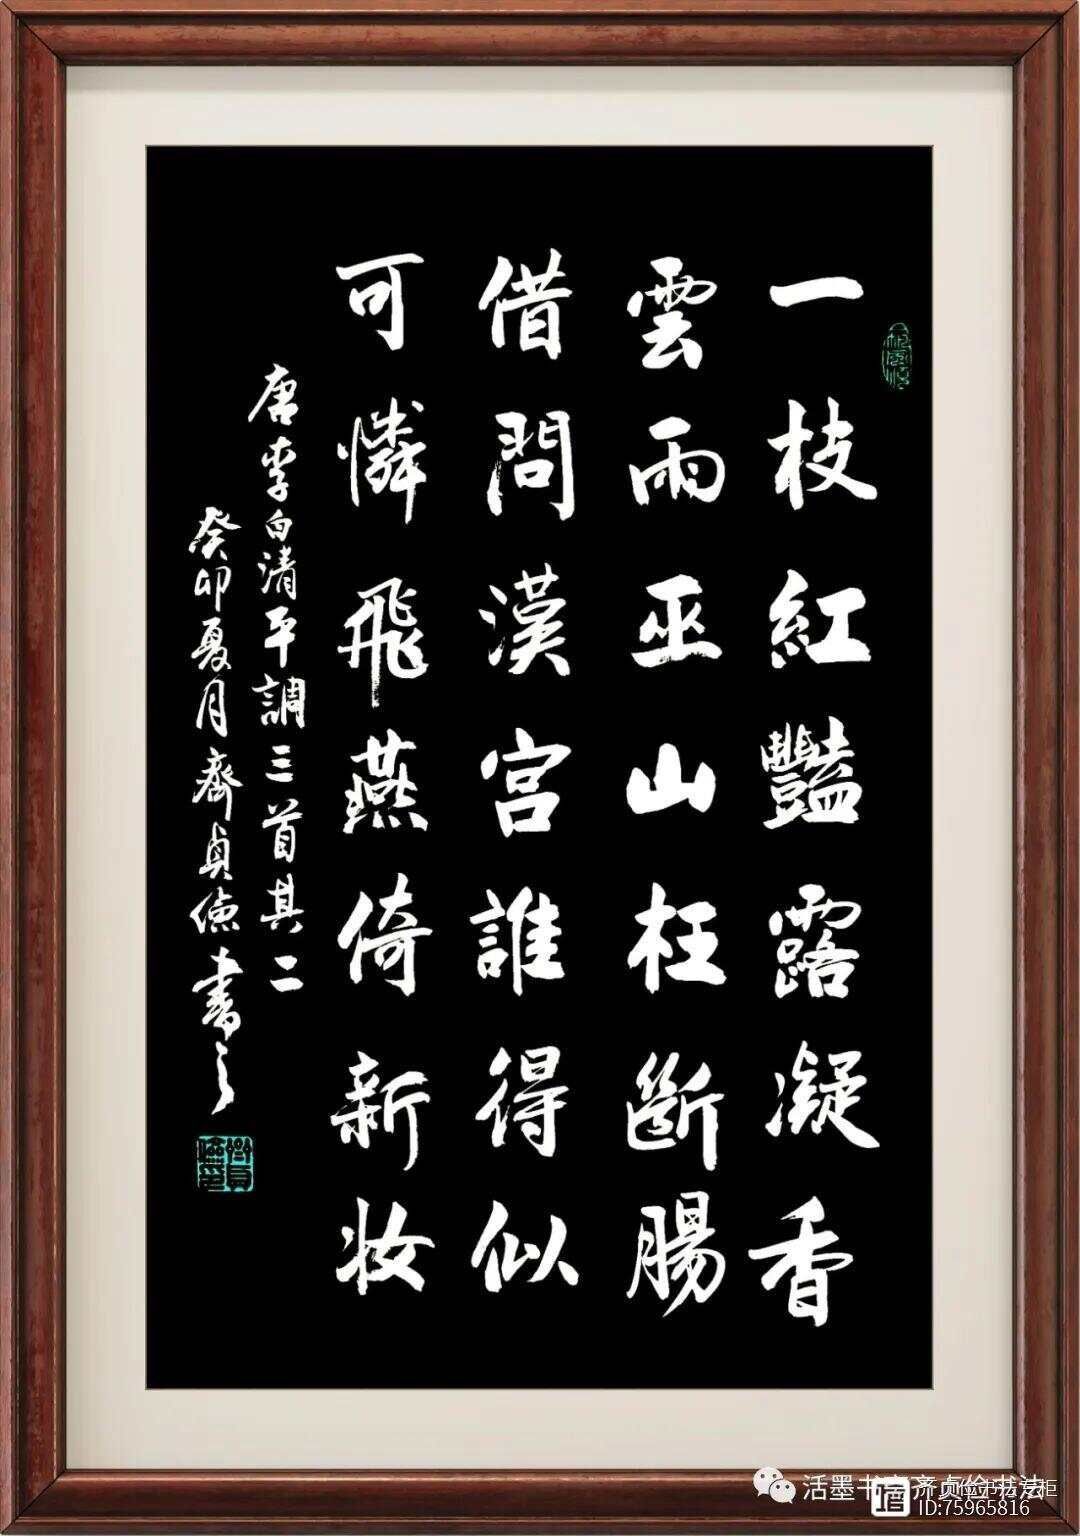 一枝紅豔露凝香
雲雨巫山枉斷腸
借問漢宮誰得似
可憐飛燕倚新妝
唐李白清平調三首其二
癸卯夏月齊貞儉書之
活墨书斋齐贞俭书法
ID:75965816